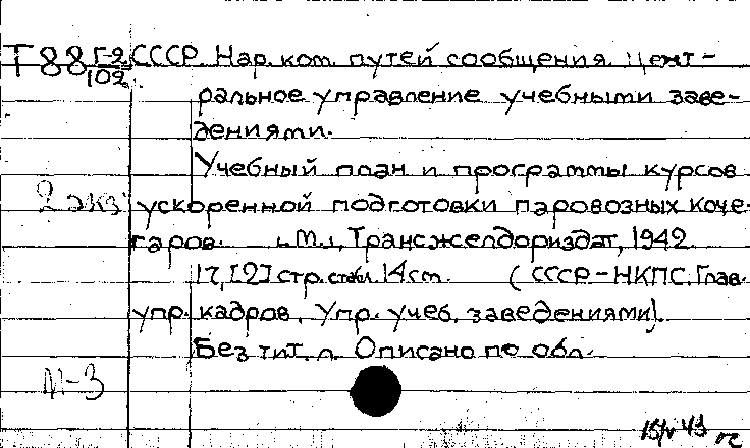 Т88 Г-2/102 СССР. Нар. ком. путей сообщения. Цент-
ральное управление учебными заве-
дениями.
Учебный план и программы курсов
2 экз ускоренной подготовки паровозных коче-
гаров. М., Трансжелдориздат, 1942.
17, [2] стр. с табл. 14 cm. (СССР-НКПС. Глав.
упр. кадров. Упр. учеб. заведениями).
Без тит. л. Описано по обл.
М-3